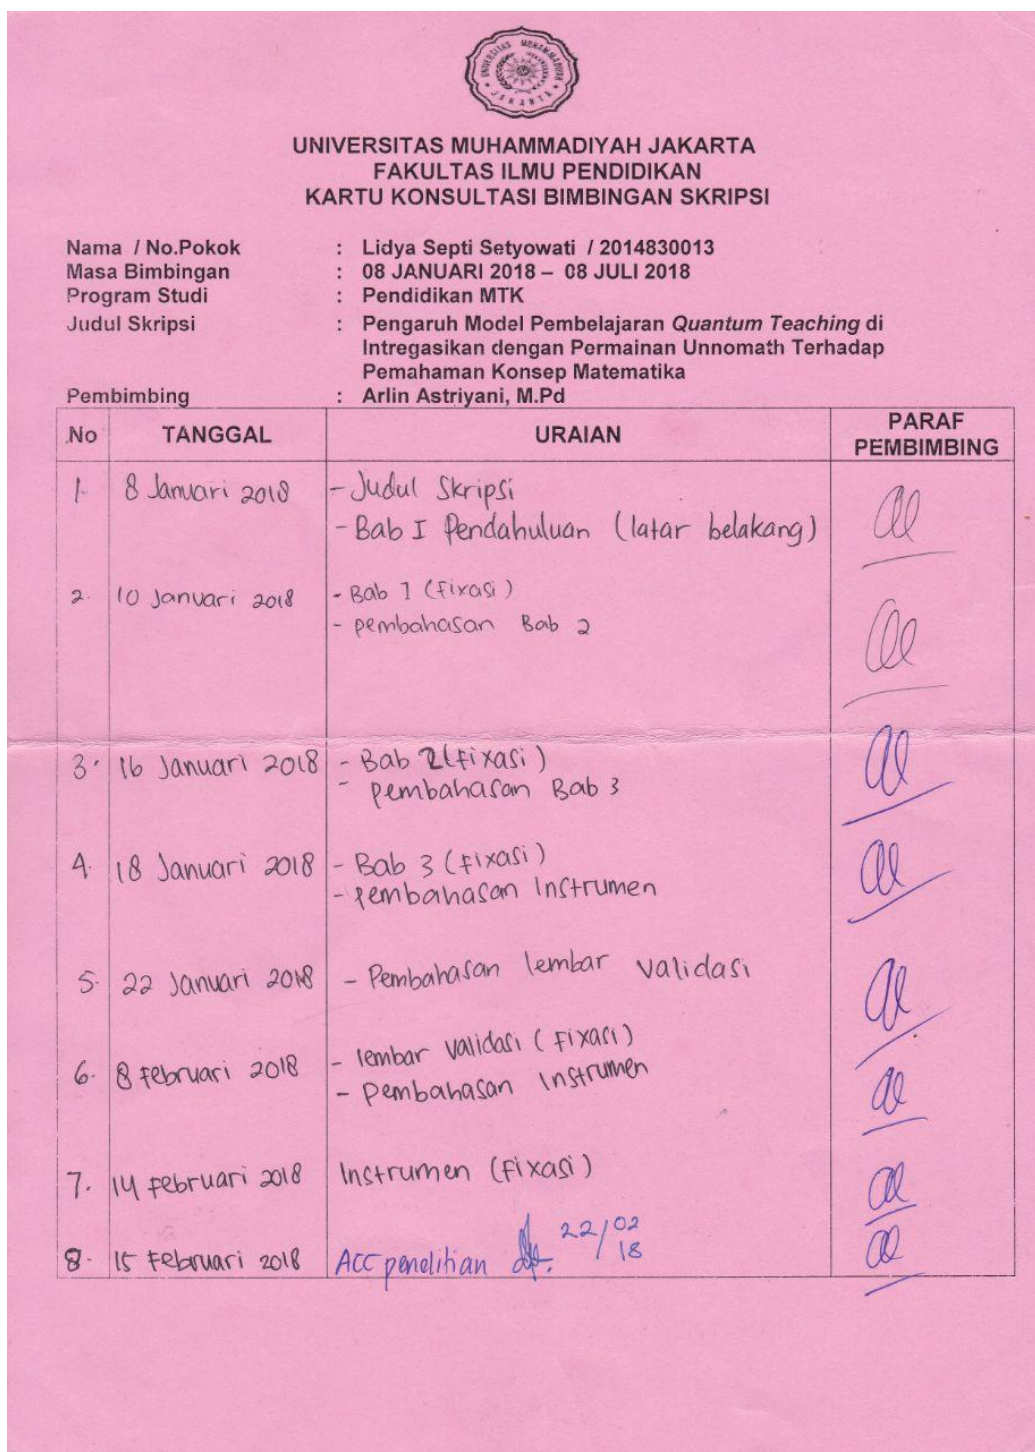 UNIVERSITAS MUHAMMADIYAH JAKARTA
UNIVERSITAS MUHAMMADIYAH JAKARTA
FAKULTAS ILMU PENDIDIKAN
KARTU KONSULTASI BIMBINGAN SKRIPSI
Nama / No.Pokok : Lidya Septi Setyowati / 2014830013
Masa Bimbingan : 08 JANUARI 2018 – 08 JULI 2018
Program Studi : Pendidikan MTK
Judul Skripsi : Pengaruh Model Pembelajaran Quantum Teaching di
Intregasikan dengan Permainan Unnomath Terhadap
Pemahaman Konsep Matematika
Pembimbing : Arlin Astriyani, M.Pd
No TANGGAL URAIAN PARAF PEMBIMBING
1. 8 Januari 2018 - Judul Skripsi
- Bab I Pendahuluan (latar belakang)
2. 10 Januari 2018 - Bab 1 (fixasi)
- pembahasan Bab 2
3. 16 Januari 2018 - Bab 2 (fixasi)
- pembahasan Bab 3
4. 18 Januari 2018 - Bab 3 (fixasi)
- pembahasan Instrumen
5. 22 Januari 2018 - Pembahasan lembar validasi
6. 8 Februari 2018 - lembar validasi (fixasi)
- Pembahasan Instrumen
7. 14 Februari 2018 Instrumen (fixasi)
8. 15 Februari 2018 ACC penelitian 22/02 18